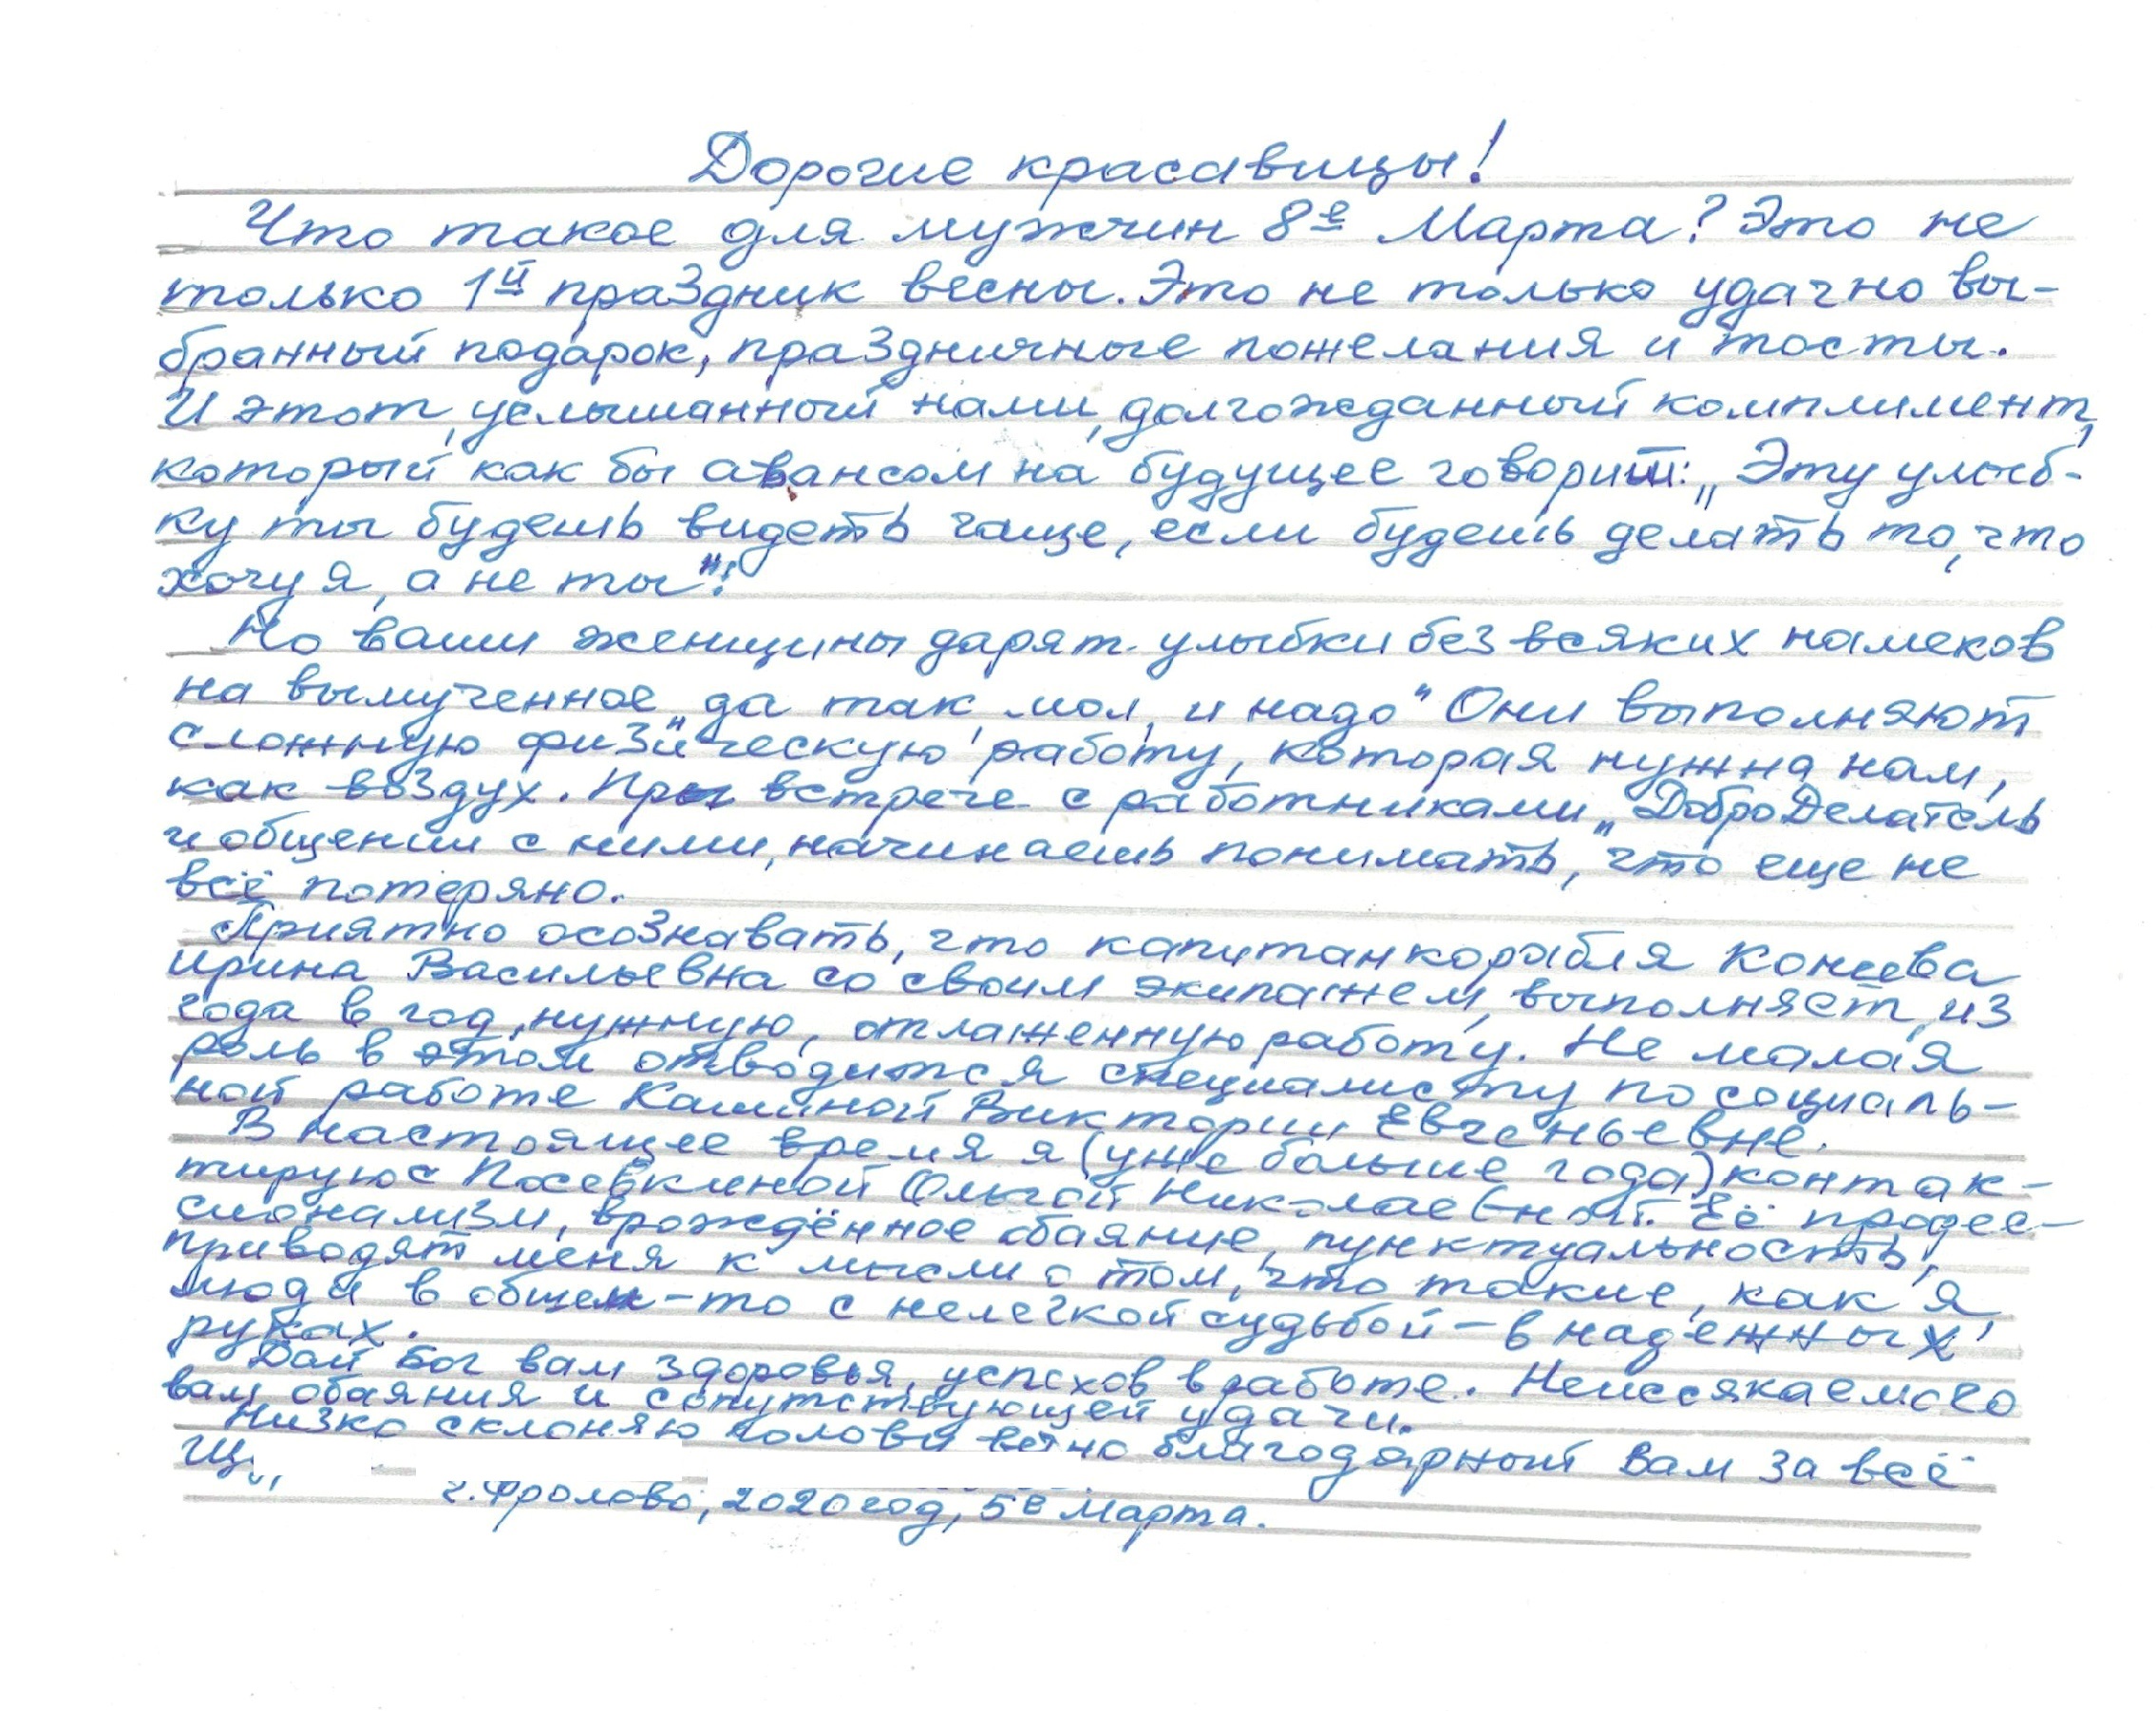 Дорогие красавицы!
Что такое для мужчин 8е Марта? Это не
только 1й праздник весны. Это не только удачно вы-
бранный подарок, праздничные пожелания и тосты.
И этот, услышанный нами, долгожданный комплимент,
который как бы авансом на будущее говорит: „Эту улыб-
ку ты будешь видеть чаще, если будешь делать то, что
хочу я, а не ты"!
Но ваши женщины дарят улыбки без всяких намеков
на вымученное „да так, мол, и надо" Они выполняют
сложную физическую работу, которая нужна нам,
как воздух. При встрече с работниками „ДоброДелатель
и общении с ними, начинаешь понимать, что еще не
всё потеряно.
Приятно осознавать, что капитан корабля Конева
Ирина Васильевна со своим экипажем, выполняет, из
года в год, нужную, отлаженную работу. Не малая
роль в этом отводится специалисту по социаль-
ной работе Виктории Евгеньевне.
В настоящее время я (уже больше года) контак-
тирую с Ольгой Николаевной. Её профес-
сионализм, врождённое обаяние, пунктуальность,
приводят меня к мысли о том, что такие, как я,
люди в общем-то с нелегкой судьбой – в надежных
руках.
Дай Бог вам здоровья, успехов в работе. Неиссякаемого
вам обаяния и сопутствующей удачи.
Низко склоняю голову вечно благодарный Вам за всё
Щ
г. Фролово, 2020 год, 5е Марта.